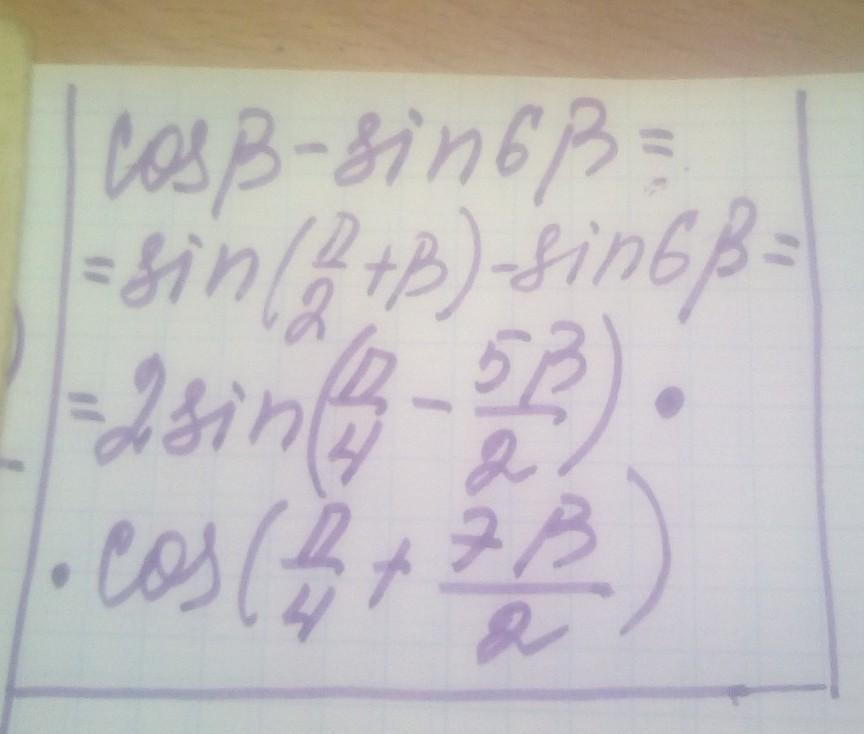 cosβ-sin6β=
=sin(π/2+β)-sin6β=
=2sin(π/4-5β/2)·
·cos(π/4+7β/2)